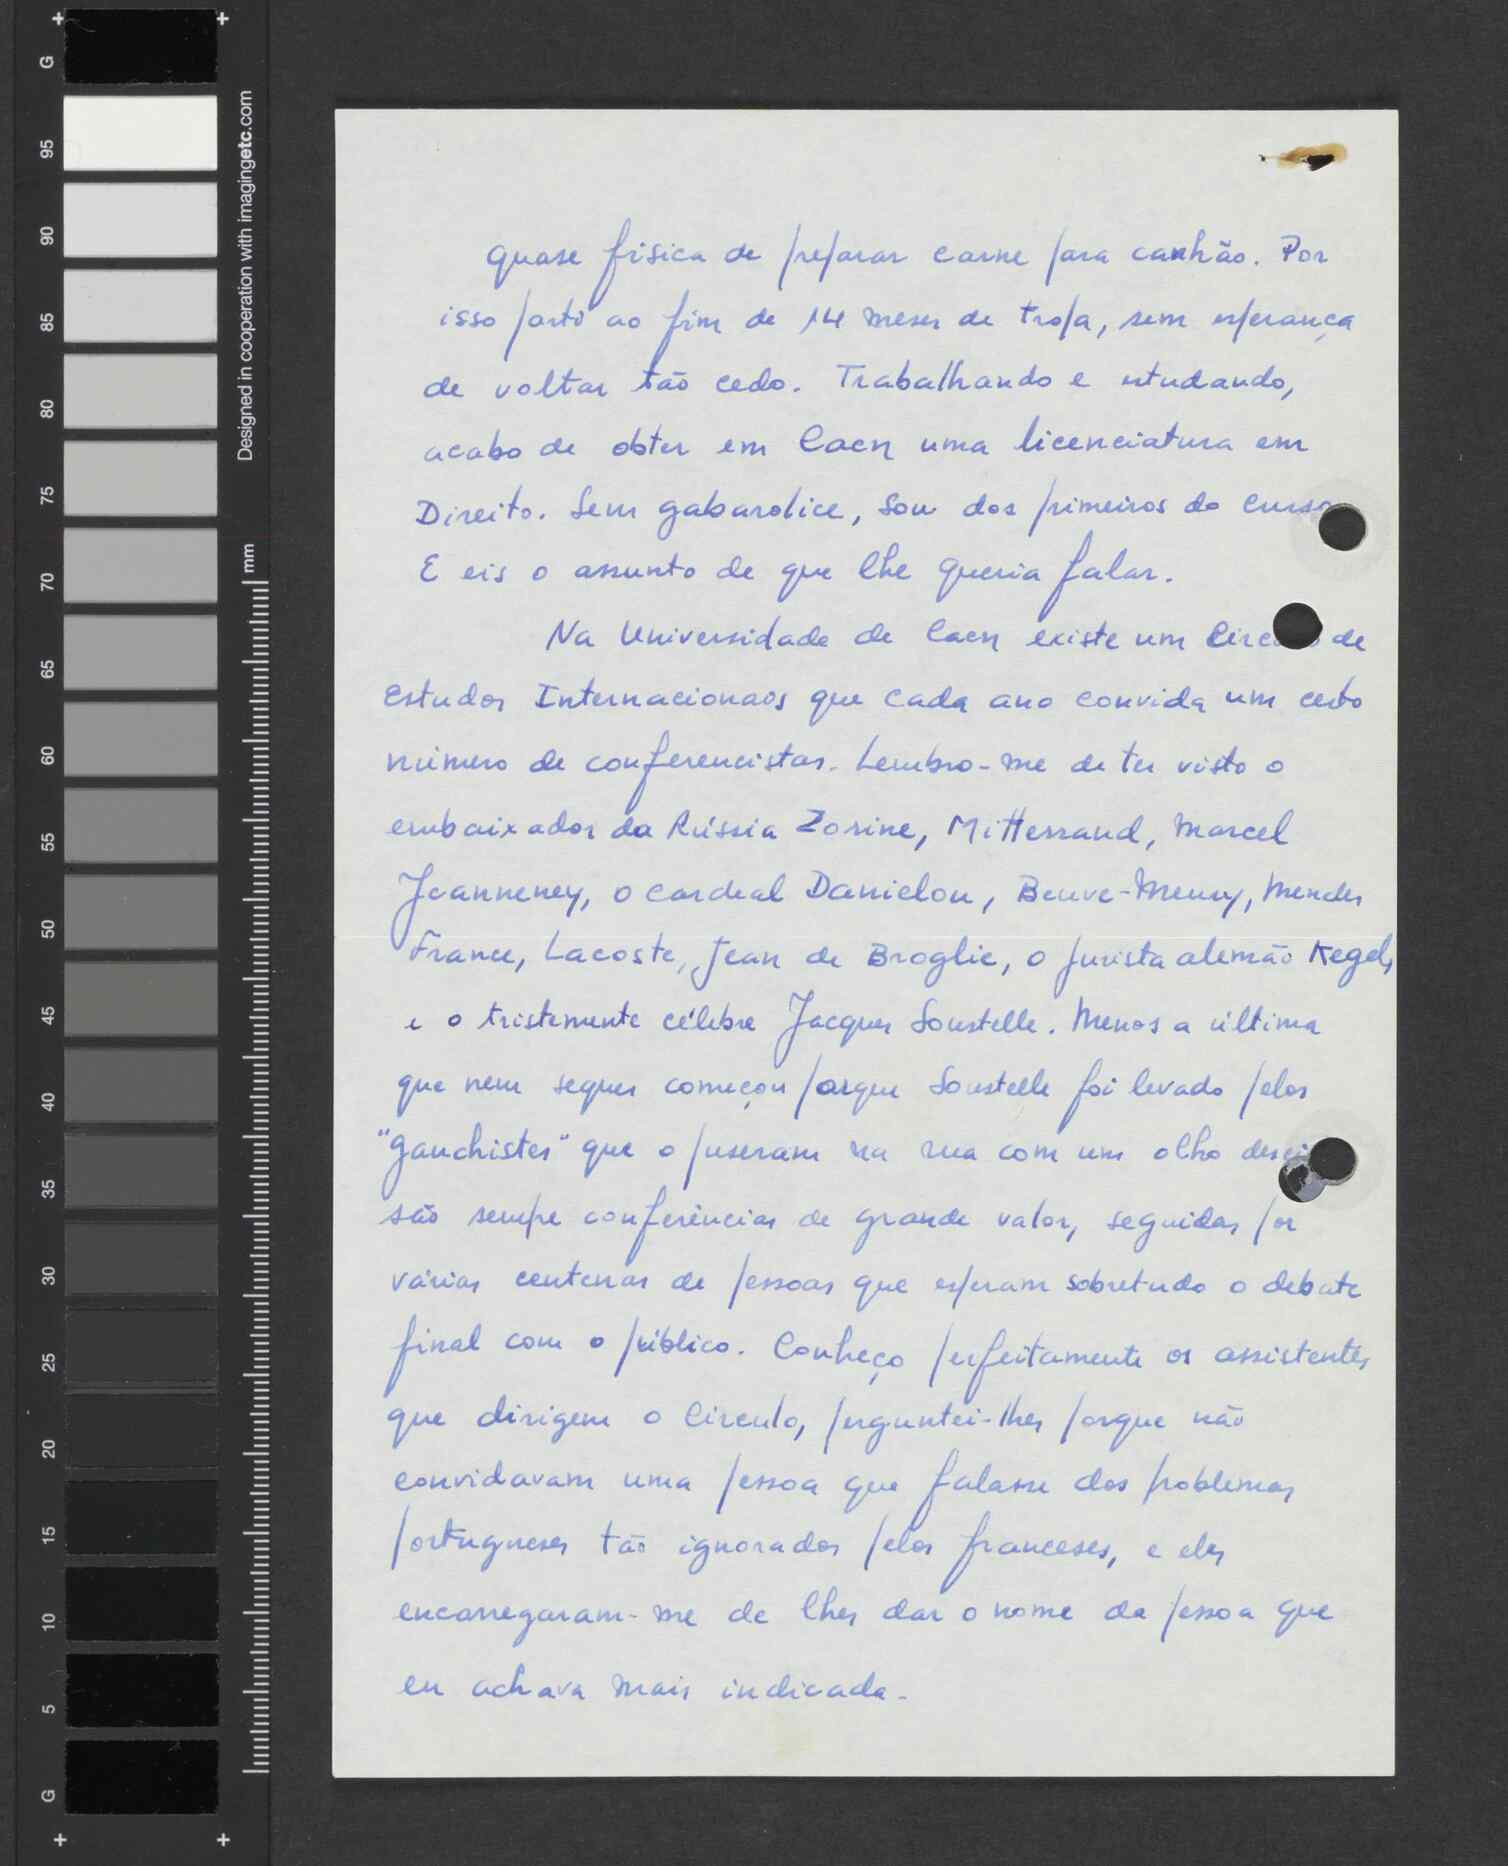 G
95
90
85
80
75
70
65
60
55
50
45
40
35
30
25
20
15
10
5
G
Designed in cooperation with imagingetc.com
mm
quase física de preparar carne para canhão. Por
isso parti ao fim de 14 meses de tropa, sem esperança
de voltar tão cedo. Trabalhando e estudando,
acabo de obter em Caen uma licenciatura em
Direito. Sem gabarolice, sou dos primeiros do curso
E eis o assunto de que lhe queria falar.
Na Universidade de Caen existe um de
Estudos Internacionaos que cada ano convida um certo
número de conferencistas. Lembro-me de ter visto o
embaixador da Rússia Zorine, Mitterrand, Marcel
Jeanneney, o cardeal Danielou, Beuve-Meury, Mendes
France, Lacoste, Jean de Broglie, o jurista alemão Kegel,
e o tristemente célebre Jacques Soustelle. Menos a última
que nem sequer começou porque Soustelle foi levado pelos
"gauchistes" que o puseram na rua com um olho
são sempre conferências de grande valor, seguidas por
várias centenas de pessoas que esperam sobretudo o debate
final com o público. Conheço perfeitamente os assistentes
que dirigem o Círculo, perguntei-lhes porque não
convidavam uma pessoa que falasse dos problemas
portugueses tão ignorados pelos franceses, e eles
encarregaram-me de lhes dar o nome da pessoa que
eu achava mais indicada.